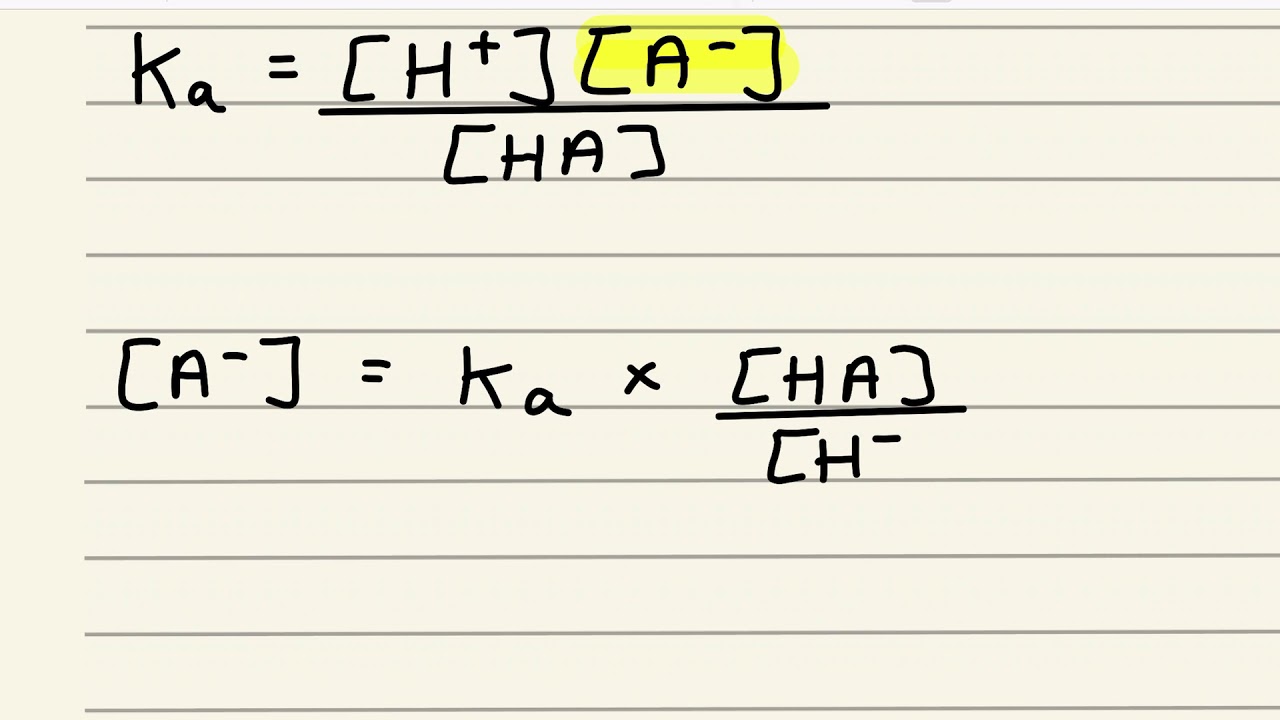 Ka = [H⁺][A⁻]
[HA]
[A⁻] = Ka × [HA]
[H⁻